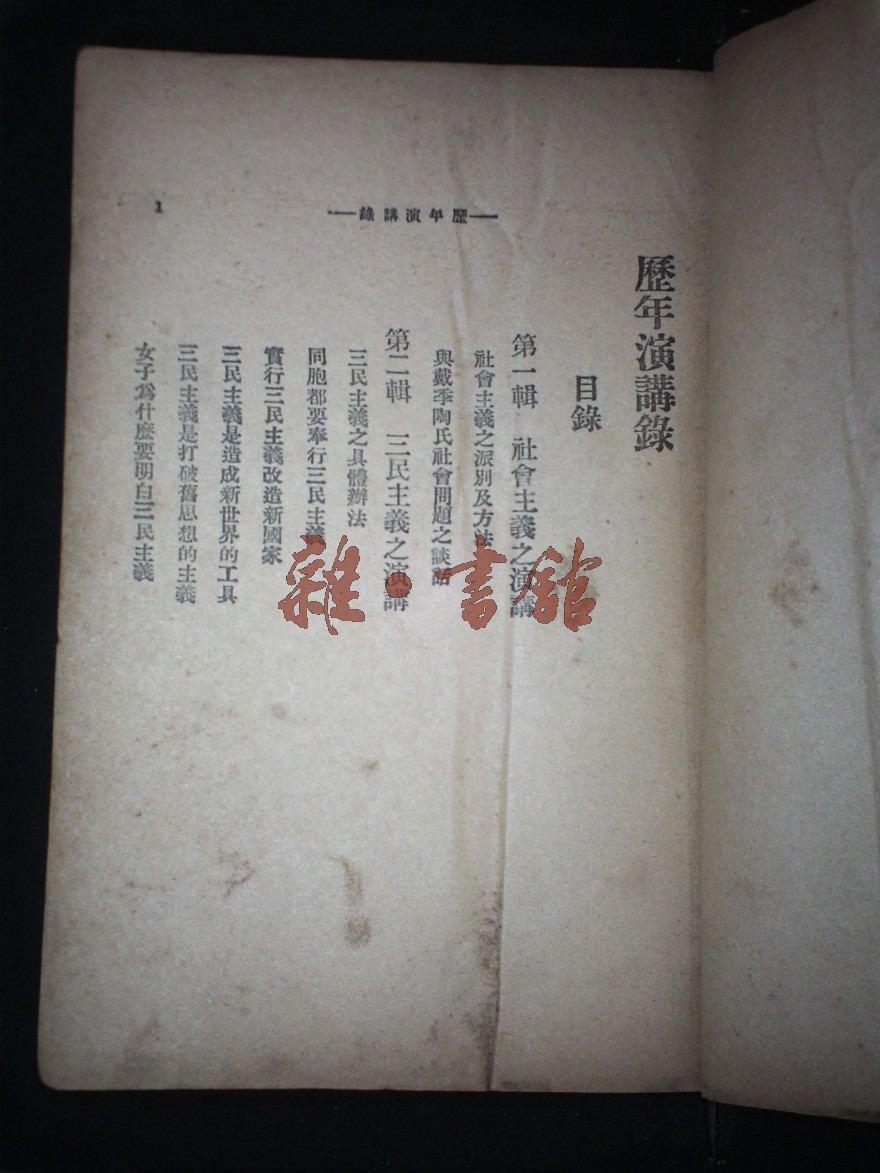 歷年演講錄
目錄
第一輯 社會主義之演講
社會主義之派別及方法
與戴季陶氏社會問題之談話
第二輯 三民主義之演講
三民主義之具體辦法
同胞都要奉行三民主義
實行三民主義改造新國家
三民主義是造成新世界的工具
三民主義是打破舊思想的主義
女子爲什麼要明白三民主義
歷年演講錄
1
雜·書館